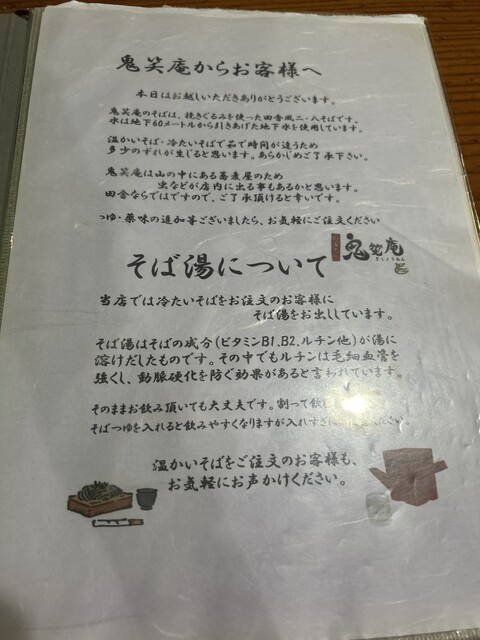 鬼笑庵からお客様へ
本日はお越しいただきありがとうございます。
鬼笑庵のそばは、挽きぐるみを使った田舎風二・八そばです。
水は地下60メートルから引きあげた地下水を使用しています。
温かいそば・冷たいそばで茹で時間が違うため
多少のずれが生じると思います。あらかじめご了承下さい。
鬼笑庵は山の中にある蕎麦屋のため
虫などが店内に出る事もあるかと思います。
田舎ならではですので、ご了承頂けると幸いです。
つゆ・薬味の追加等ございましたら、お気軽にご注文ください
鬼笑庵
きしょうあん
そば湯について
当店では冷たいそばをお注文のお客様に
そば湯をお出ししています。
そば湯はそばの成分(ビタミンB1、B2、ルチン他)が湯に
溶けだしたものです。その中でもルチンは毛細血管を
強くし、動脈硬化を防ぐ効果があると言われています。
そのままお飲み頂いても大丈夫です。割って飲
そばつゆを入れると飲みやすくなりますが入れすぎに
ください。
温かいそばをご注文のお客様も、
お気軽にお声かけください。